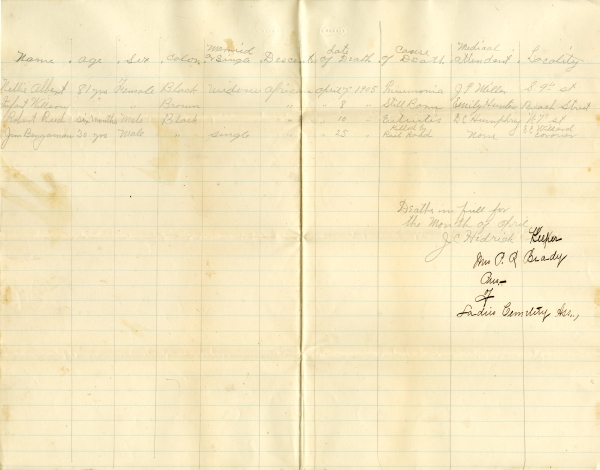 Name. age. Sex. Color. Married or Single Descent. date of Death Cause of Death Medical Attendent. Locality
Albert 81 yrs Female Black Widow African April 7 1905 Pneumonia J P Miller S 9th st
Infant " Brown " " 8 Still Born Emily Hunter Beach Street
Robert Reed six months Male Black " " 10 E C Humphrey N 7" St
Jim Bengaman 30 yrs Male " Single " " 25 Killed by Rail Rodd None Coroner
Deaths in full for
the Month of Aprl
J. C. Hedrick Keeper
Mrs P. Q Brady
Of
Ladies Cemetery Assn,